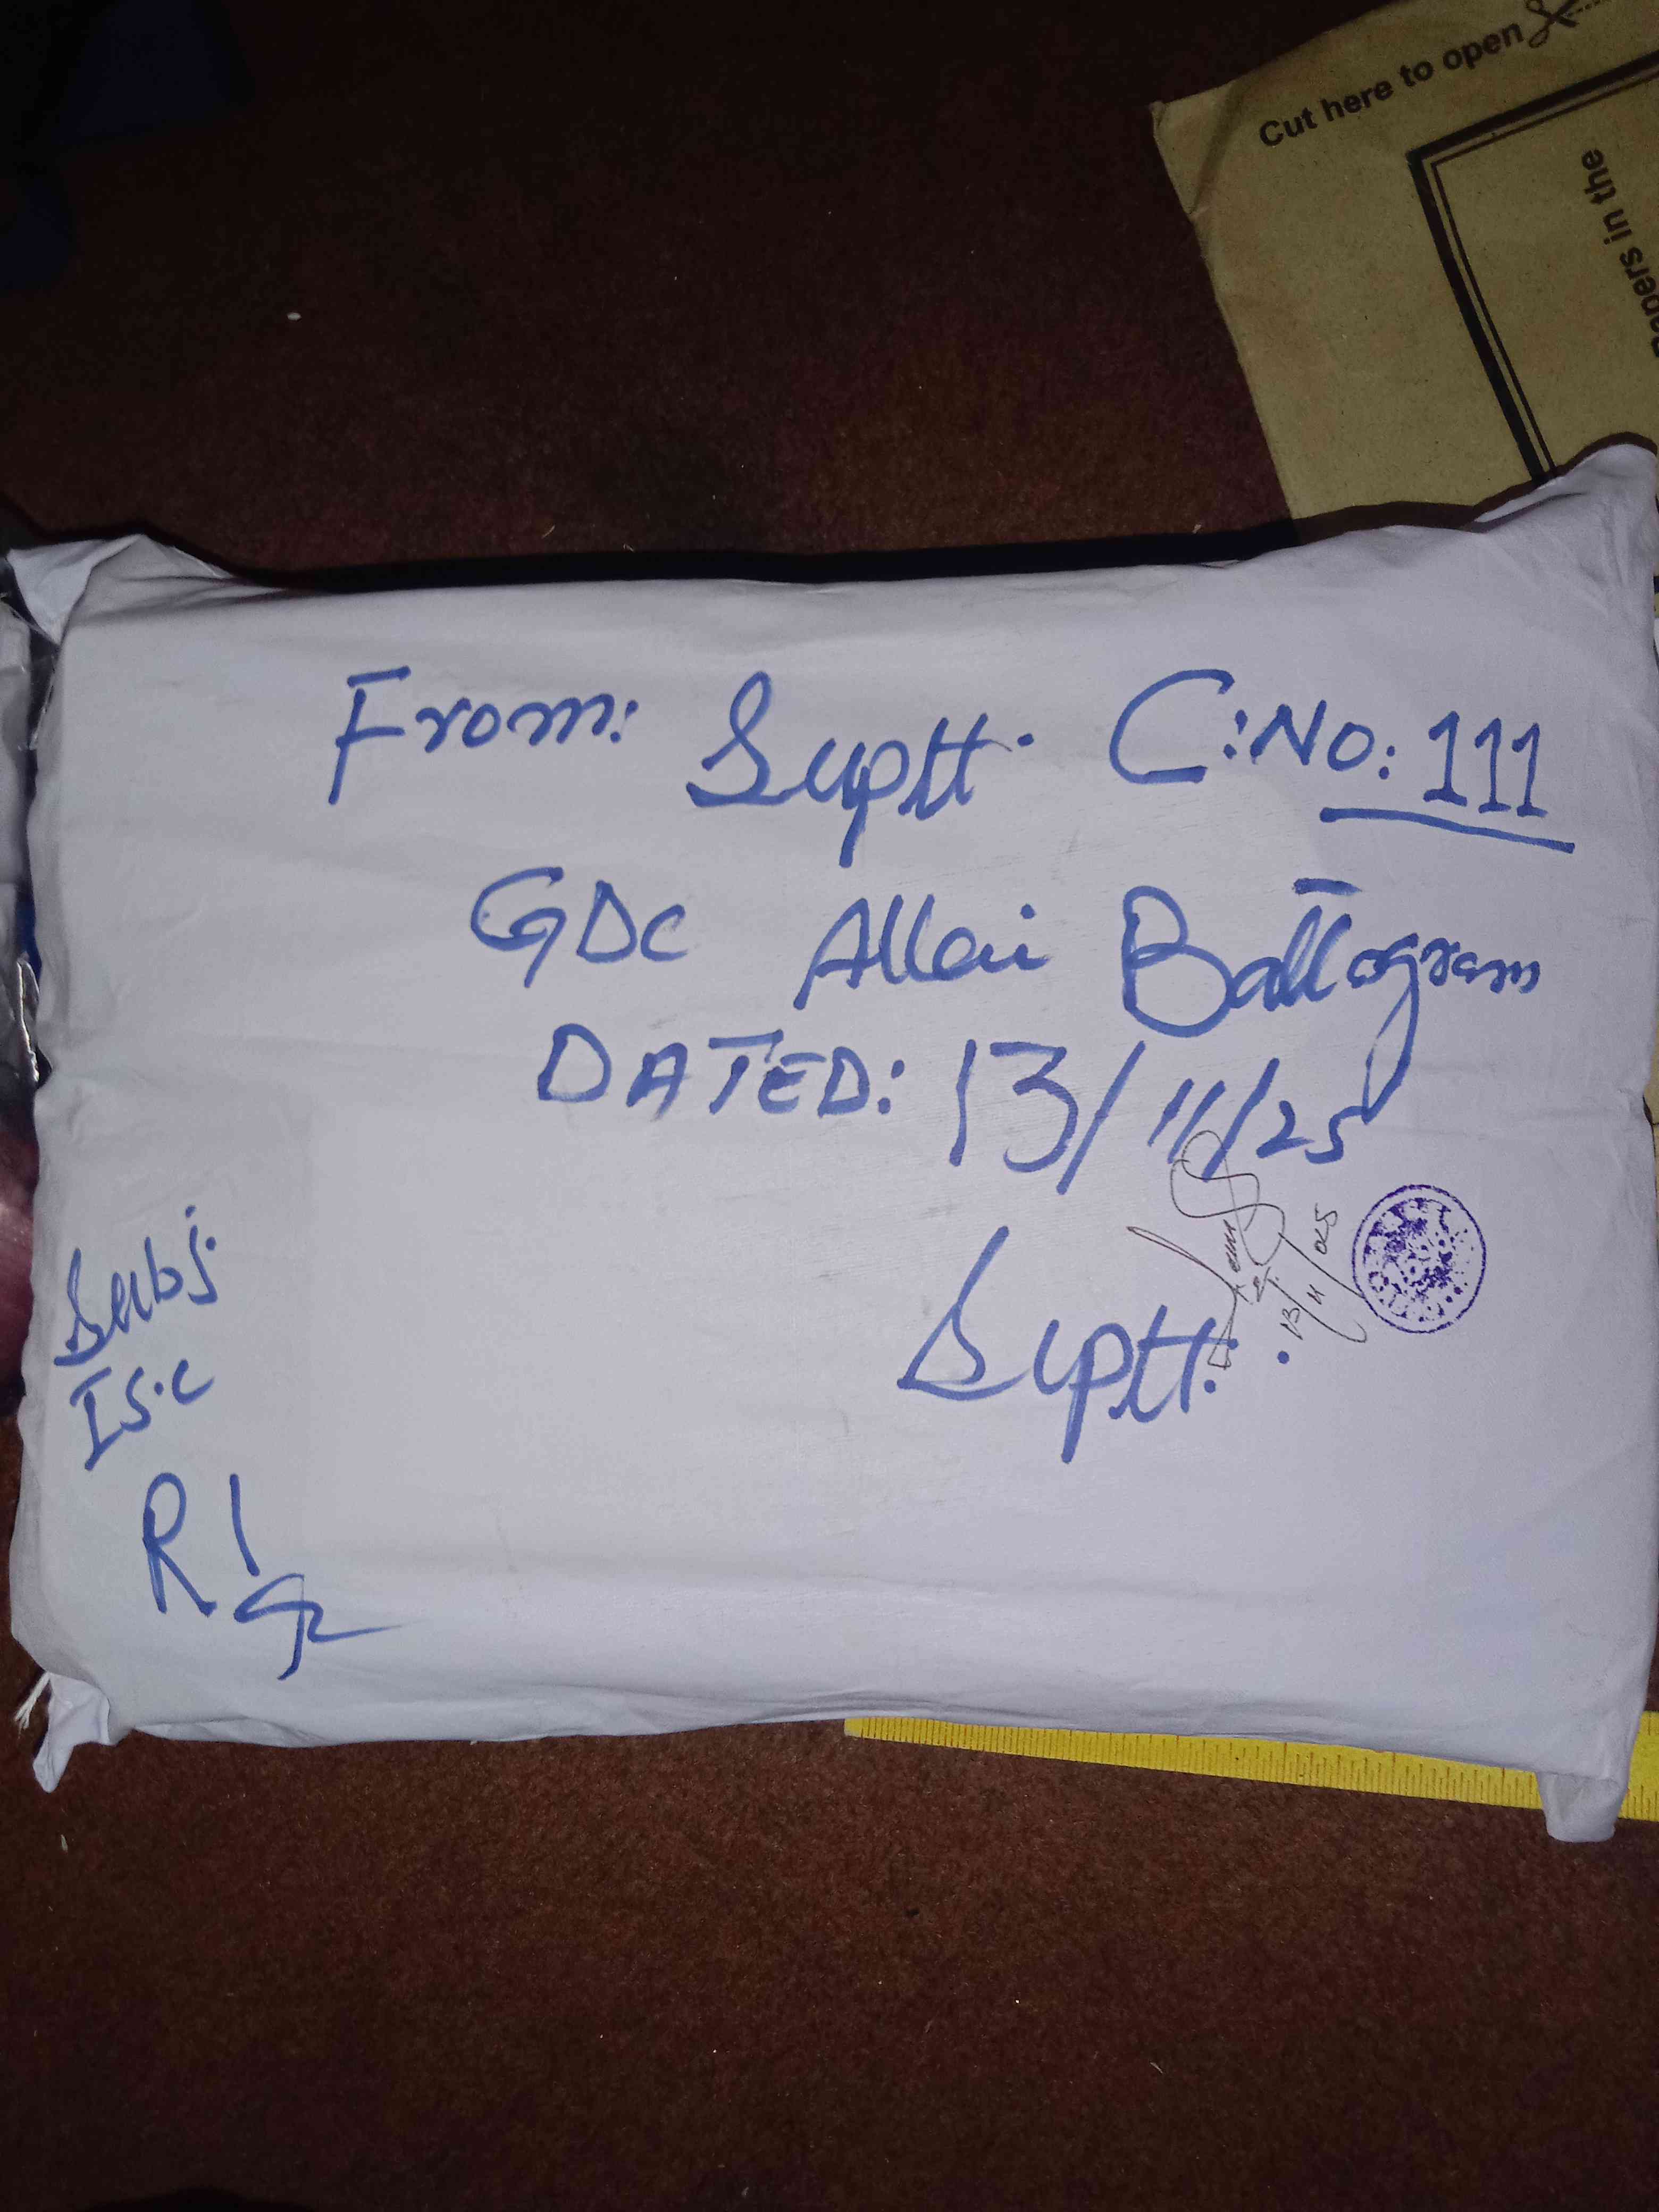 Cut here to open
Papers in the
From: Suptt. C:No: 111
GDC Allai Battagram
DATED: 13/11/25
13/11/025
Suptt:
Subj:
IS.C
R1